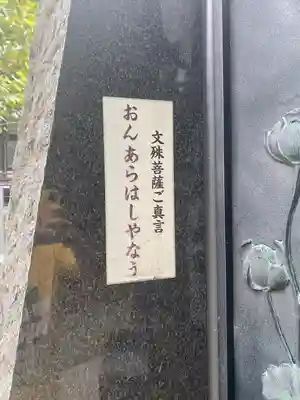 文殊菩薩ご真言
おんあらはしやなう